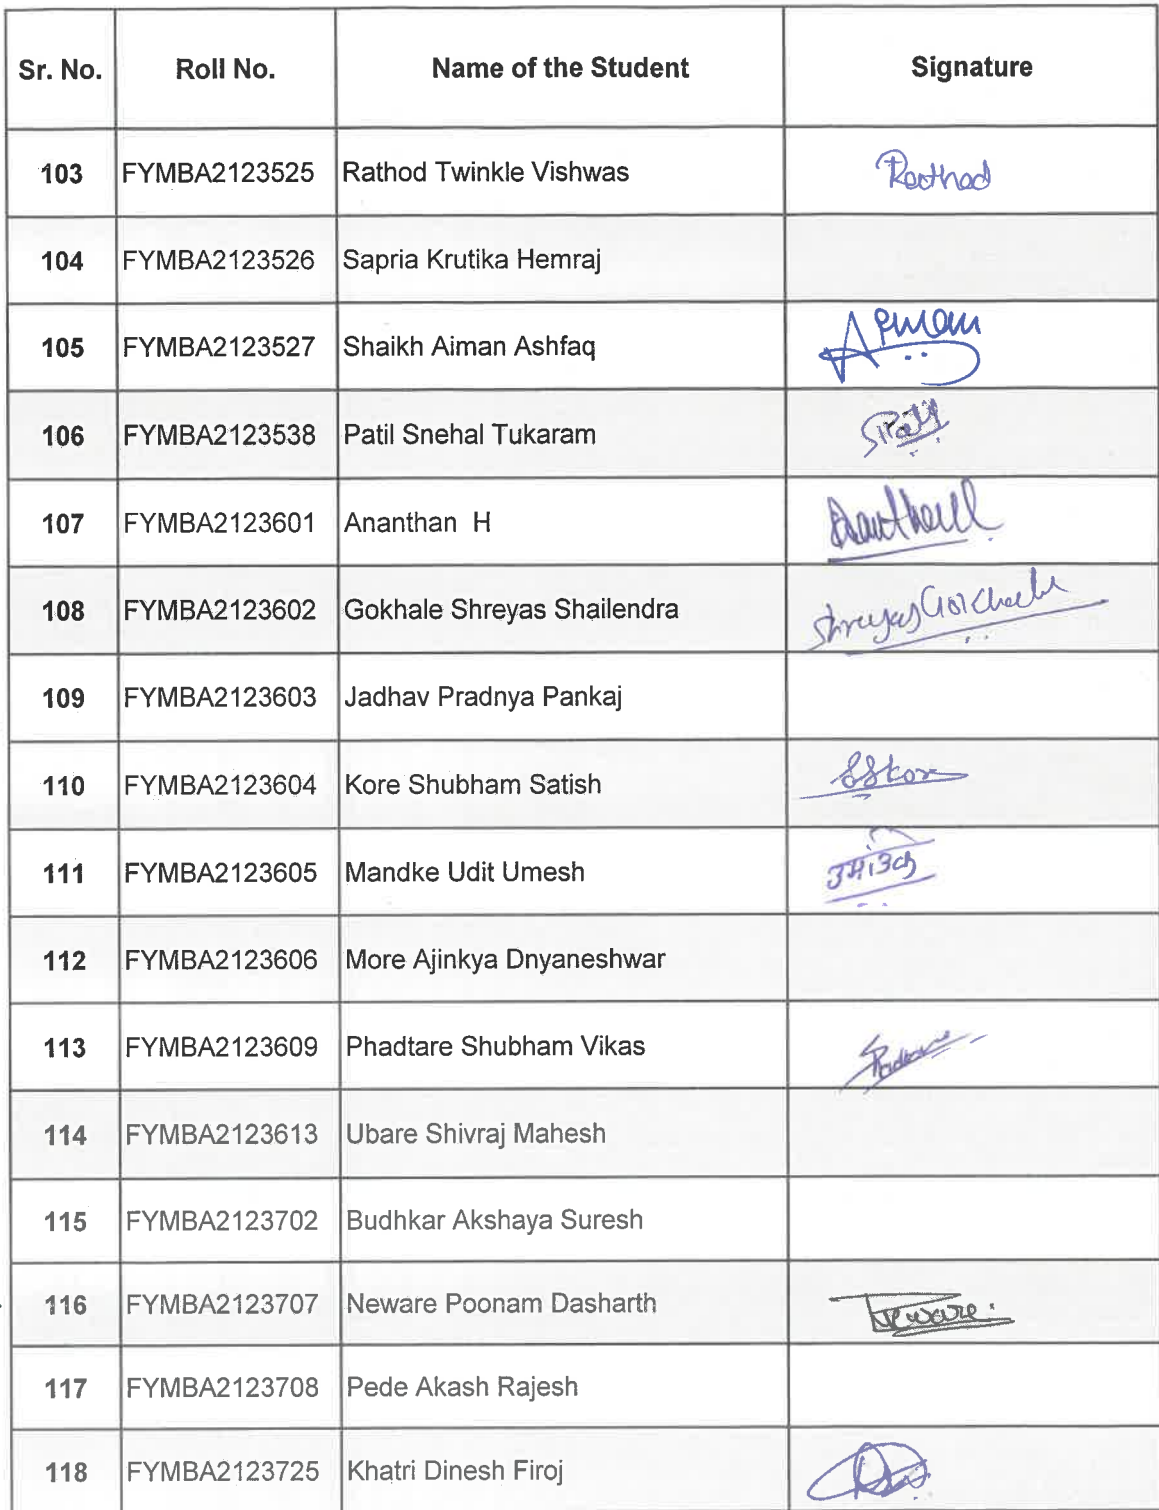 Sr. No. Roll No. Name of the Student Signature
103 FYMBA2123525 Rathod Twinkle Vishwas Rathod
104 FYMBA2123526 Sapria Krutika Hemraj
105 FYMBA2123527 Shaikh Aiman Ashfaq Aiman
106 FYMBA2123538 Patil Snehal Tukaram
107 FYMBA2123601 Ananthan H
108 FYMBA2123602 Gokhale Shreyas Shailendra Shreyas
109 FYMBA2123603 Jadhav Pradnya Pankaj
110 FYMBA2123604 Kore Shubham Satish SSKore
111 FYMBA2123605 Mandke Udit Umesh
112 FYMBA2123606 More Ajinkya Dnyaneshwar
113 FYMBA2123609 Phadtare Shubham Vikas
114 FYMBA2123613 Ubare Shivraj Mahesh
115 FYMBA2123702 Budhkar Akshaya Suresh
116 FYMBA2123707 Neware Poonam Dasharth Neware.
117 FYMBA2123708 Pede Akash Rajesh
118 FYMBA2123725 Khatri Dinesh Firoj